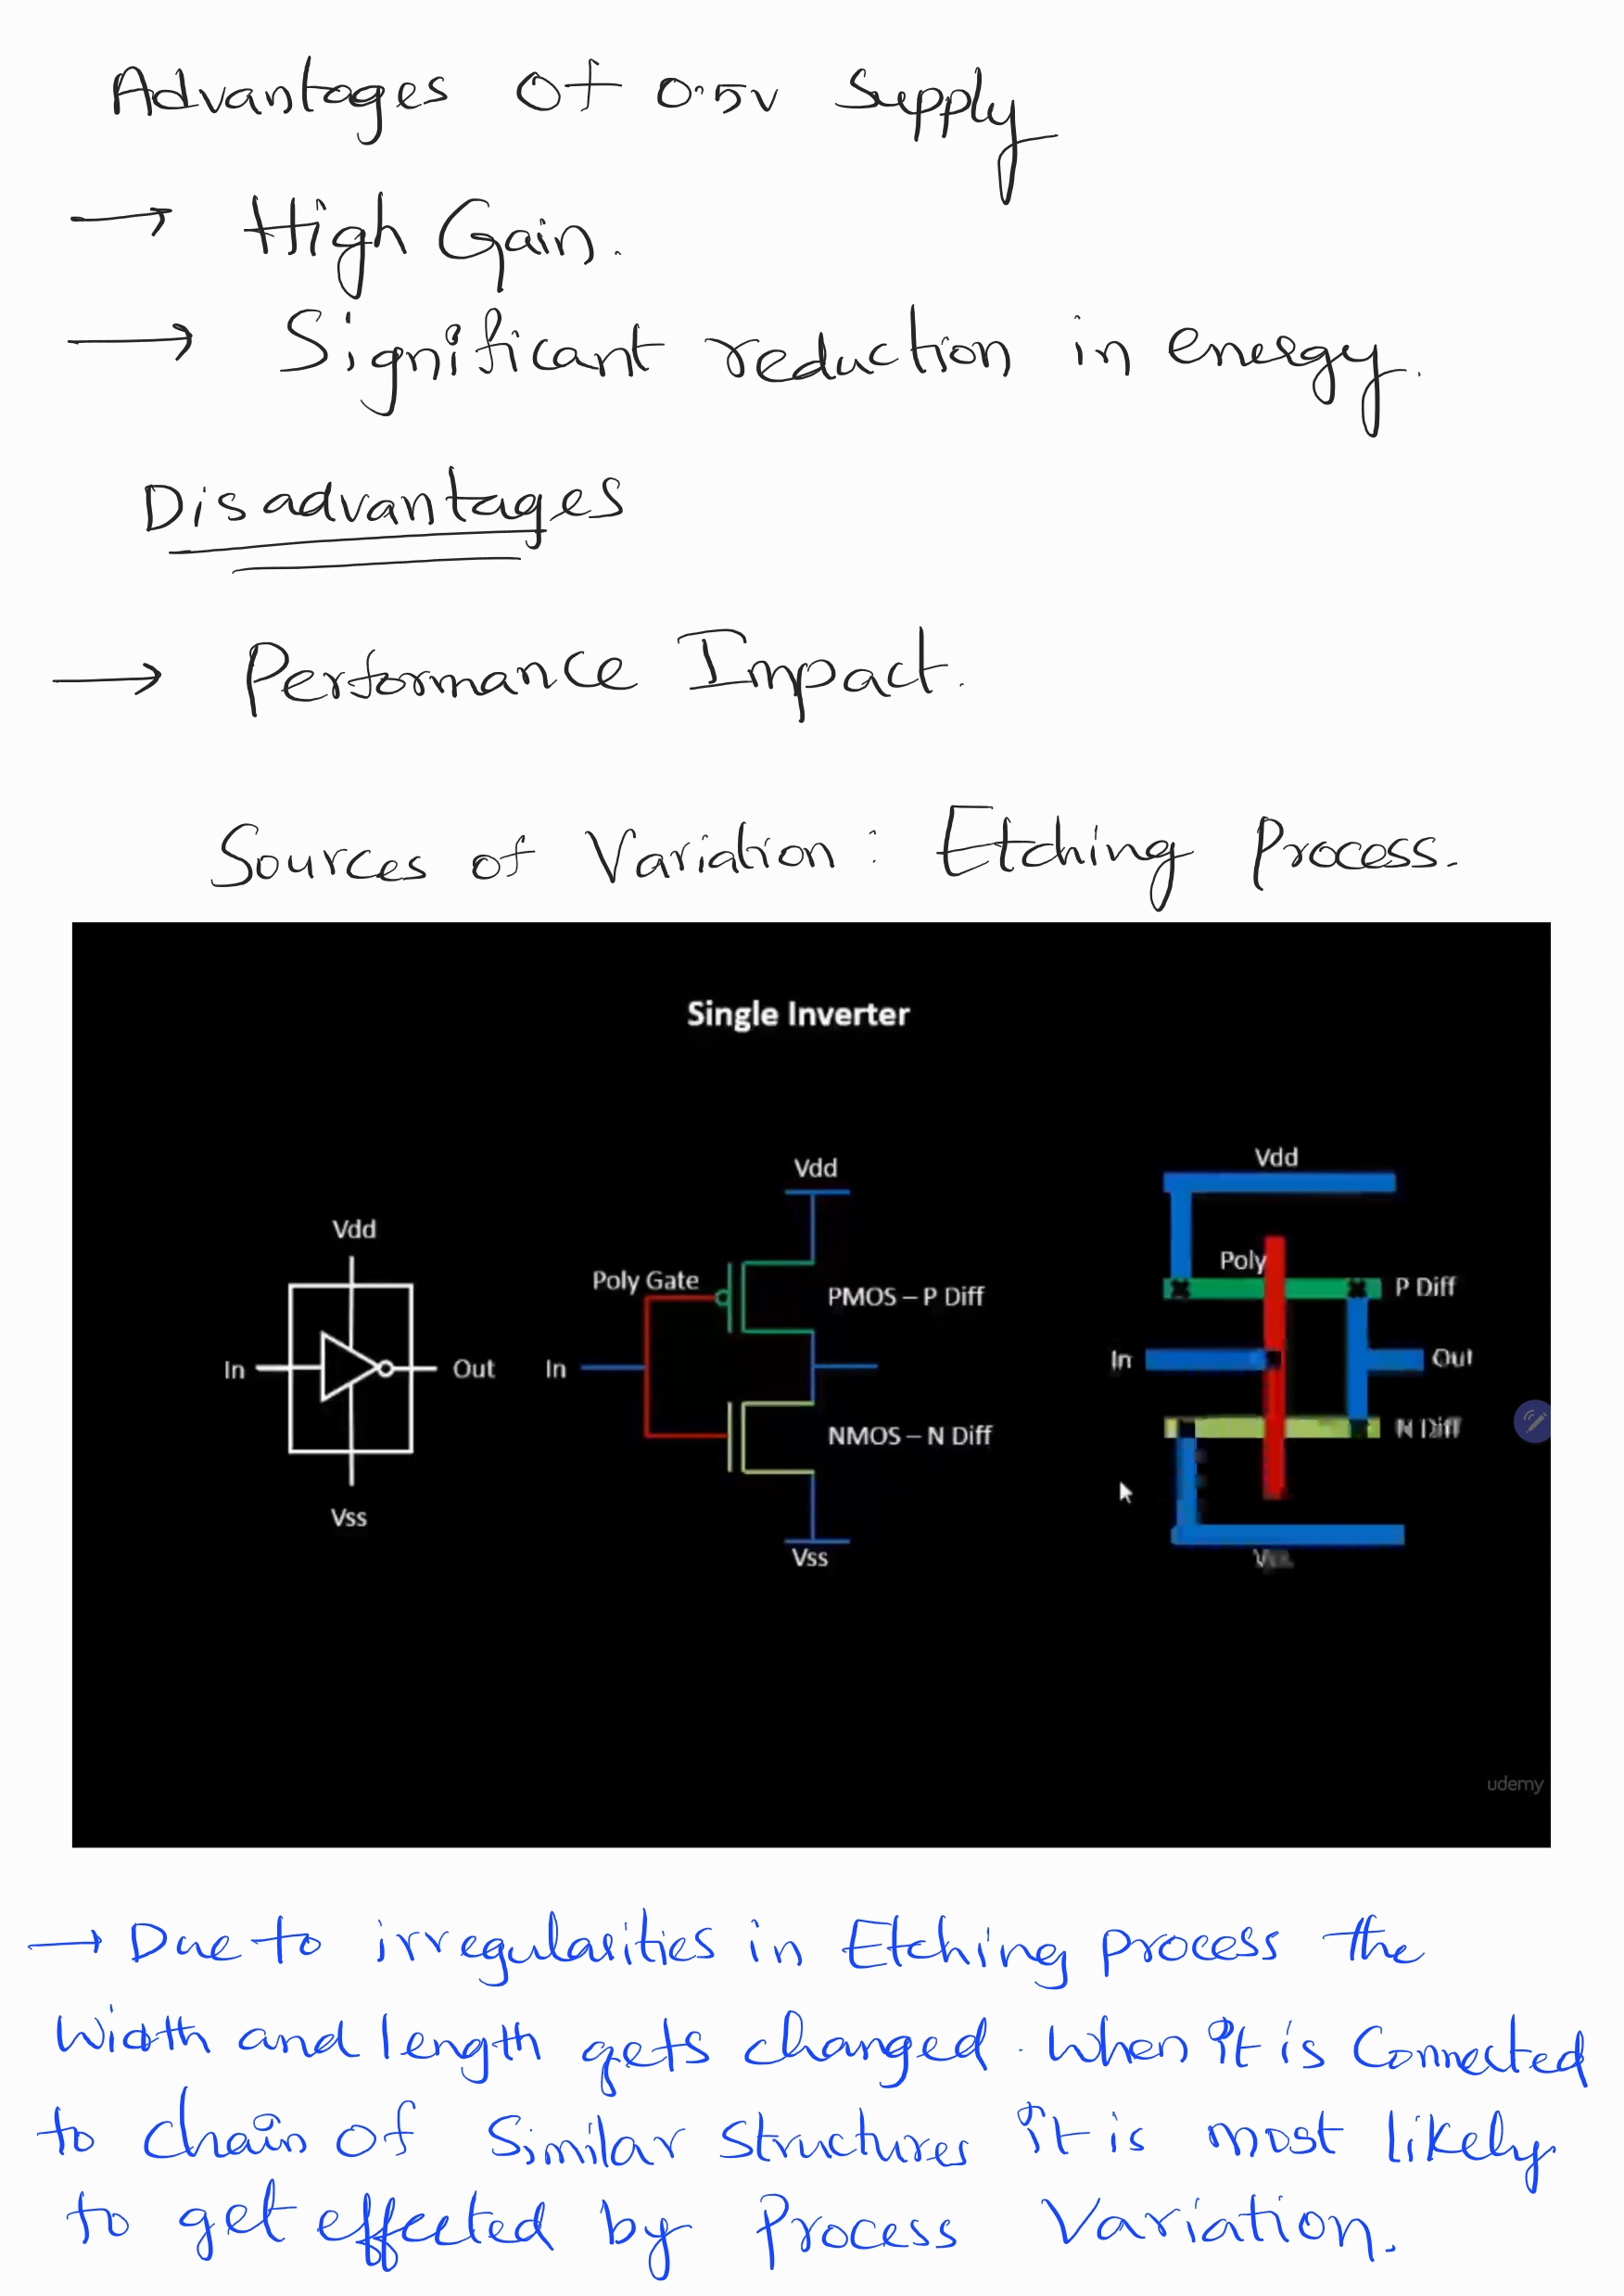 Advantages Of 0.5v Supply
→ High Gain.
→ Significant reduction in energy.
Disadvantages
→ Performance Impact.
Sources of Variation : Etching Process.
Single Inverter
Vdd
In
Out
Vss
Vdd
Poly Gate
PMOS – P Diff
In
NMOS – N Diff
Vss
Vdd
Poly
P Diff
In
Out
N Diff
udemy
→ Due to irregularities in Etching process the
Width and length gets changed. When it is Connected
to chain of similar structures it is most likely
to get effected by Process Variation.